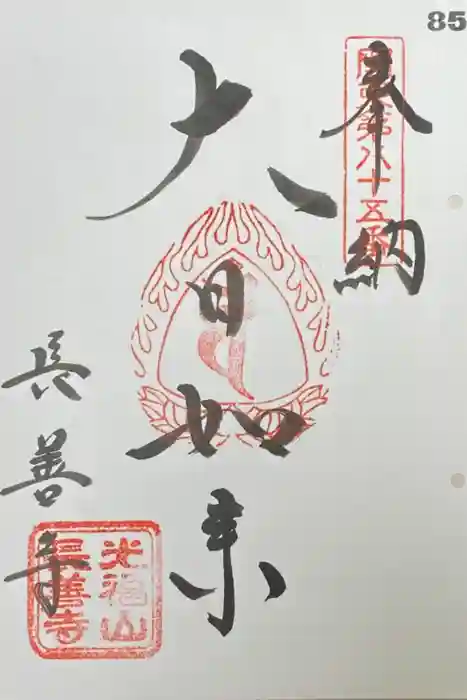 85
奉納
関東第八十五番
大日如来
長善寺
光福山
長善寺